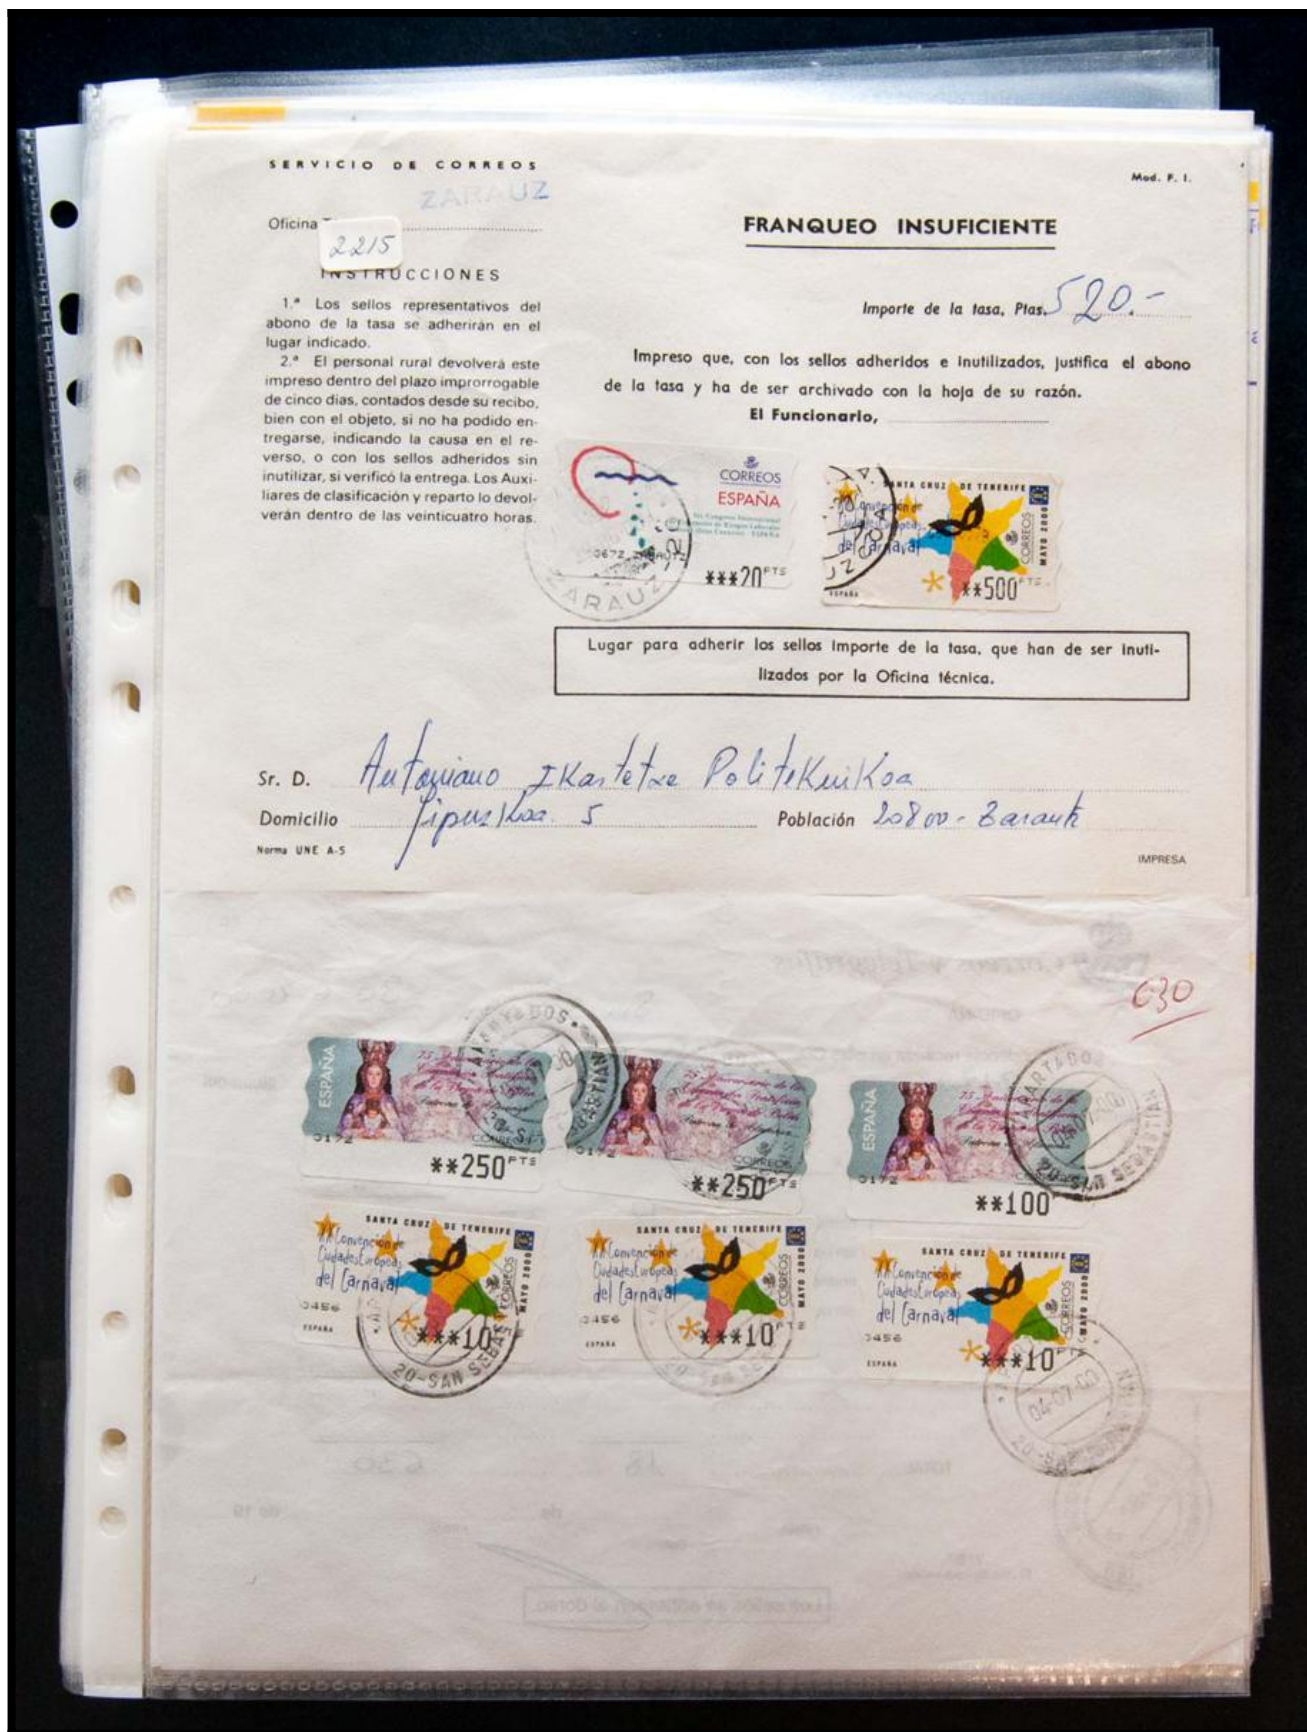 SERVICIO DE CORREOS
Mod. F. I.
ZARAUZ
Oficina
2215
FRANQUEO INSUFICIENTE
INSTRUCCIONES
1.ª Los sellos representativos del
abono de la tasa se adherirán en el
lugar indicado.
2.ª El personal rural devolverá este
impreso dentro del plazo improrrogable
de cinco dias, contados desde su recibo,
bien con el objeto, si no ha podido en-
tregarse, indicando la causa en el re-
verso, o con los sellos adheridos sin
inutilizar, si verificó la entrega. Los Auxi-
liares de clasificación y reparto lo devol-
verán dentro de las veinticuatro horas.
Importe de la tasa, Ptas. 520.-
Impreso que, con los sellos adheridos e inutilizados, justifica el abono
de la tasa y ha de ser archivado con la hoja de su razón.
El Funcionario,
CORREOS
ESPAÑA
0672 ZARAUTZ
***20 PTS
ZARAUZ
SANTA CRUZ DE TENERIFE
Convención de
Ciudades Europeas
del Carnaval
CORREOS
MAYO 2000
**500 PTS
ESPAÑA
Lugar para adherir los sellos importe de la tasa, que han de ser inuti-
lizados por la Oficina técnica.
Sr. D. Antoniano Ikastetxe Politeknikoa
Domicilio Gipuzkoa 5 Población 20800 - Zarautz
Norma UNE A-5
IMPRESA
630
ESPAÑA
75 Aniversario de la
0172
CORREOS
**250 PTS
75 Aniversario de la
0172
CORREOS
**250 PTS
ESPAÑA
75 Aniversario de la
0172
**100
APARTADOS
04-07-00
20-SAN SEBASTIAN
SANTA CRUZ DE TENERIFE
XX Convención de
Ciudades Europeas
del Carnaval
CORREOS
MAYO 2000
0456
ESPAÑA
***10
20-SAN SEBAS
SANTA CRUZ DE TENERIFE
XX Convención de
Ciudades Europeas
del Carnaval
CORREOS
MAYO 2000
0456
ESPAÑA
***10 PTS
20-SAN SE
SANTA CRUZ DE TENERIFE
XX Convención de
Ciudades Europeas
del Carnaval
CORREOS
MAYO 2000
0456
ESPAÑA
***10 PT
04-07-00